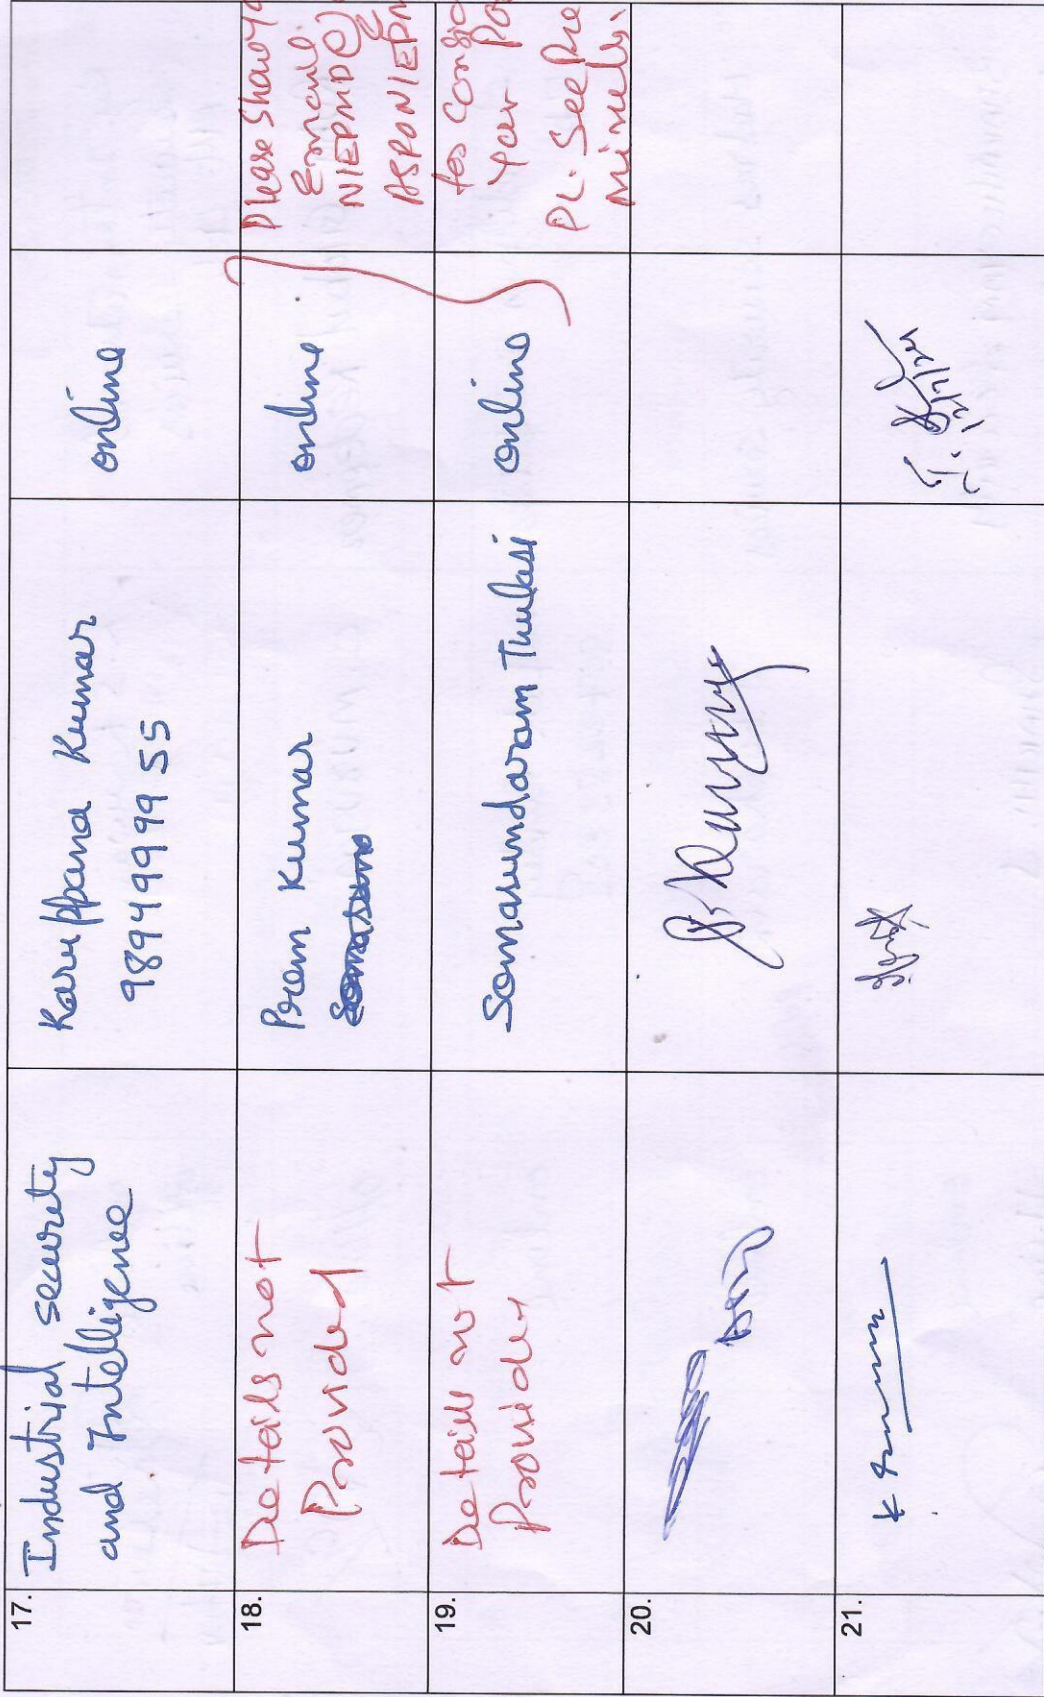 17.
Industrial security
and Intelligence
Karuppana Kumar
9894999955
online
18.
Details not
Provided
Prem Kumar
online
Please Show
Email:
NIEPMD@
19.
Details not
Provided
Somasundaram Thulasi
online
for
Your
Pl. See Pre
Minutes.
20.
21.
12/7/24